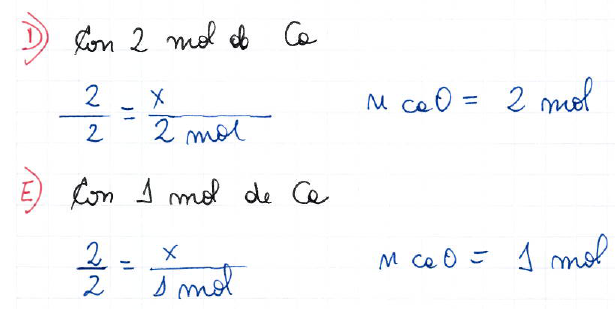 D) Con 2 mol de Ca
2/2 = x/2 mol n CaO = 2 mol
E) Con 1 mol de Ca
2/2 = x/1 mol n CaO = 1 mol